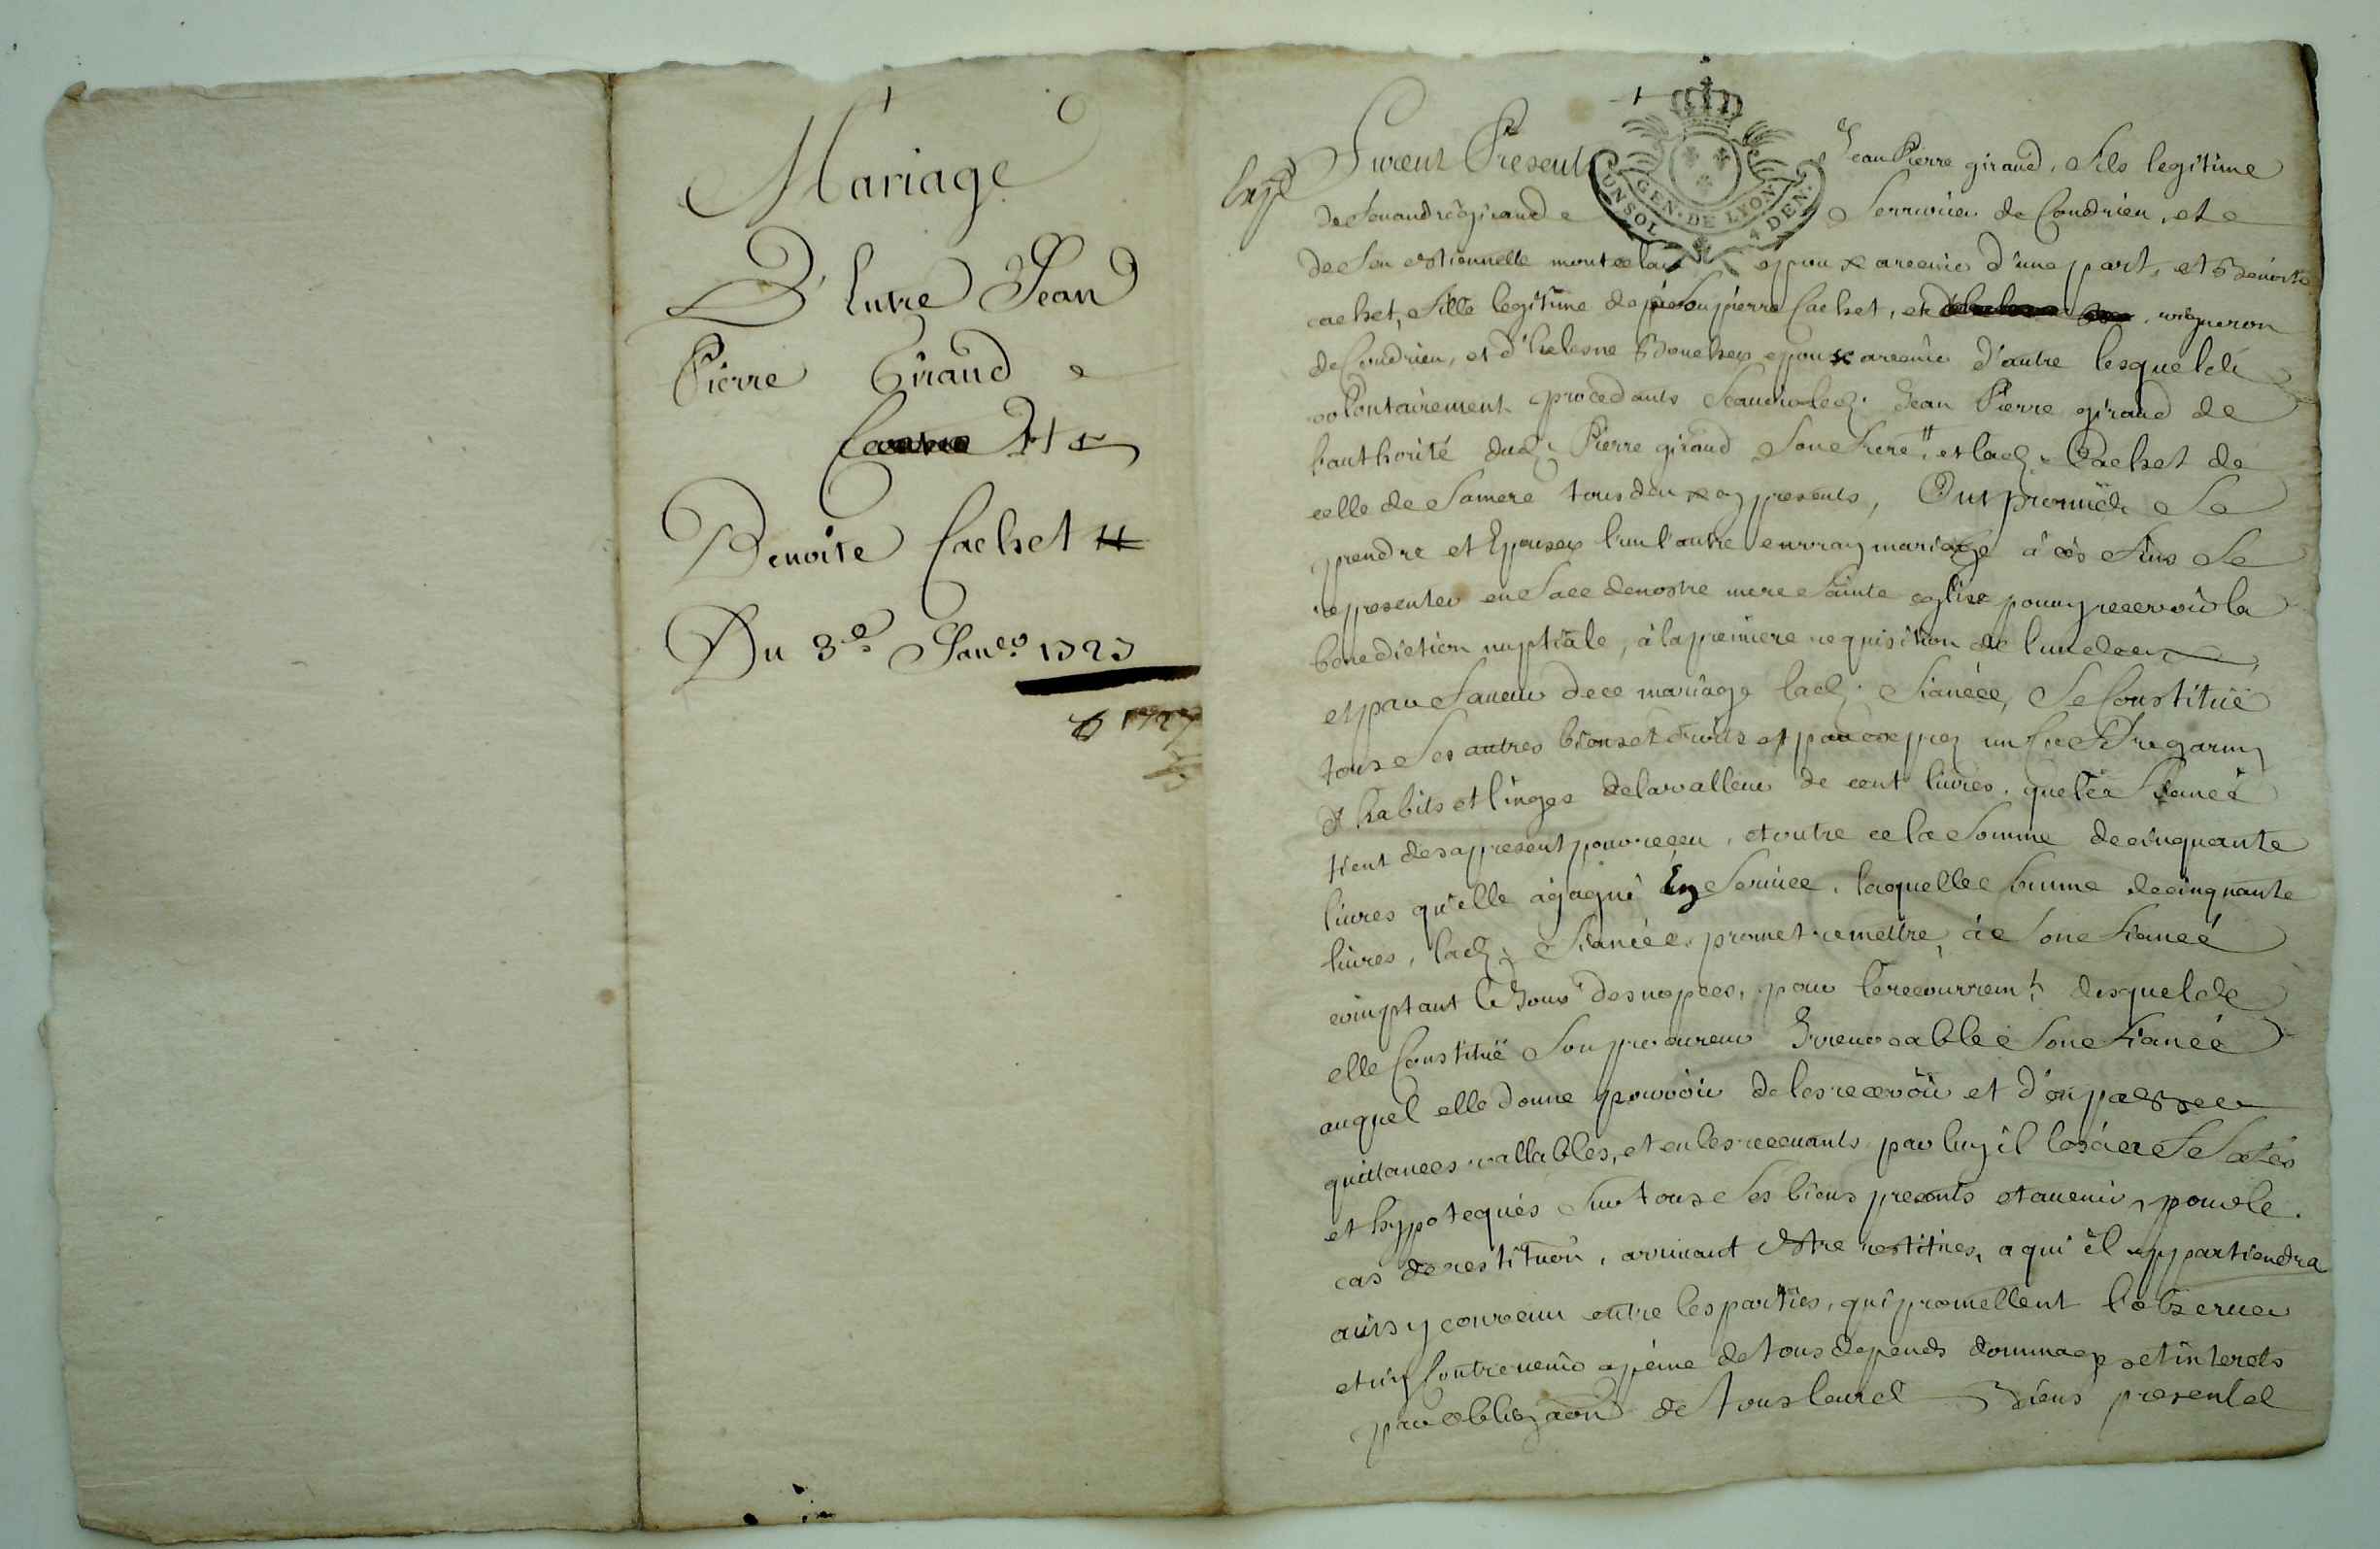 Mariage
D'Entre Jean
Pierre Giraud
Et
Benoite Cachet
Du 8e. Janer. 1727
1727
Furent Presents Jean Pierre giraud, fils legitime
GEN. DE LYON
UN SOL 4 DEN.
de feu andré giraud Serrurier de Condrieu, et
de feu estiennette montelan epoux avenir d'une part, et Benoite
cachet, fille legitime de feu pierre Cachet, vigneron
de Condrieu, et d'helesne Boucher epouse avenir d'autre lesquelds
volontairement procedants scauoir led. Jean Pierre giraud de
l'authorité dud. Pierre giraud son frere, et lad. Cachet de
celle de sa mere tous deux cy presents, Ont promis de se
prendre et Epouser l'un l'autre en vray mariage à ces fins se
representer en face de nostre mere sainte eglise pour y recevoir la
benediction nuptiale, à la premiere requisition de l'un deux
et pour faueur de ce mariage lad. fiancée, se Constitüe
tous ses autres biens et droits et par exprez un coffre garny
d'habits et linges de la valleur de cent liures, que le fiancé
tient des a present pour receu, et outre ce la somme de cinquante
liures qu'elle a gagné En seruice, laquelle somme de cinquante
liures, lad. fiancée promet remettre, à son fiancé
comptant le Jour des nopces, pour le recouvremt. desquelds
elle Constitüe son procureur Irreuocable son fiancé
auquel elle donne pouvoir de les recevoir et d'en passer
quittances vallables, et en les receuants par luy il les a
et hypotequés sur tous ses biens presents et auenir, pour le
cas de restituon, arriuant estre restitués, a qui il appartiendra
ainsy convenu entre les parties, qui promettent l'obseruer
et n'y Contreuenir a peine de tous depends dommages et interets
par obligaon de tous leurs Biens presents